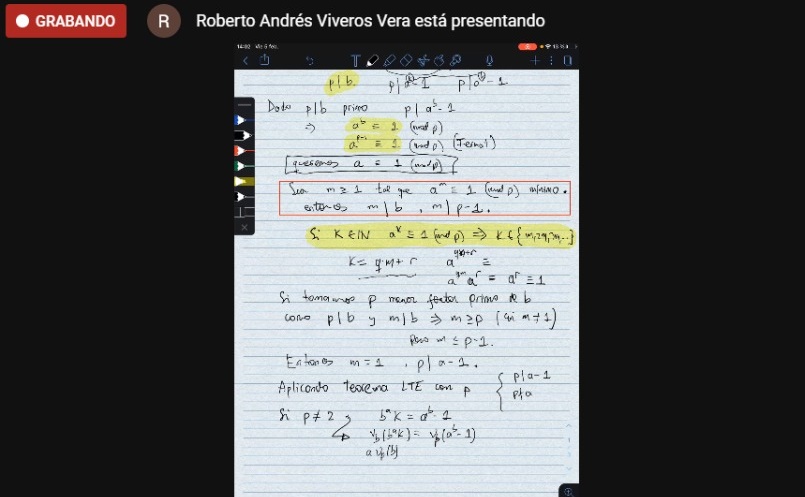 GRABANDO
R
Roberto Andrés Viveros Vera está presentando
p|b. p|a^b-1 p|a^b-1
Dado p|b primo p|a^b-1
⇒ a^b ≡ 1 (mod p)
a^{p-1} ≡ 1 (mod p) (Fermat)
queremos a ≡ 1 (mod p)
Sea m ≥ 1 tal que a^m ≡ 1 (mod p) mínimo.
entonces m|b, m|p-1.
Si K∈ℕ a^K ≡ 1 (mod p) ⇒ K∈{m,2m,3m,...}
K = q·m+r a^{qm+r} ≡
a^{qm} a^r ≡ a^r ≡ 1
Si tomamos p menor factor primo de b
como p|b y m|b ⇒ m≥p (si m≠1)
pero m ≤ p-1.
Entonces m=1, p|a-1.
Aplicando teorema LTE con p { p|a-1
p∤a
Si p≠2, b^a K = a^b-1
V_p(b^a K) = V_p(a^b-1)
a V_p(b)